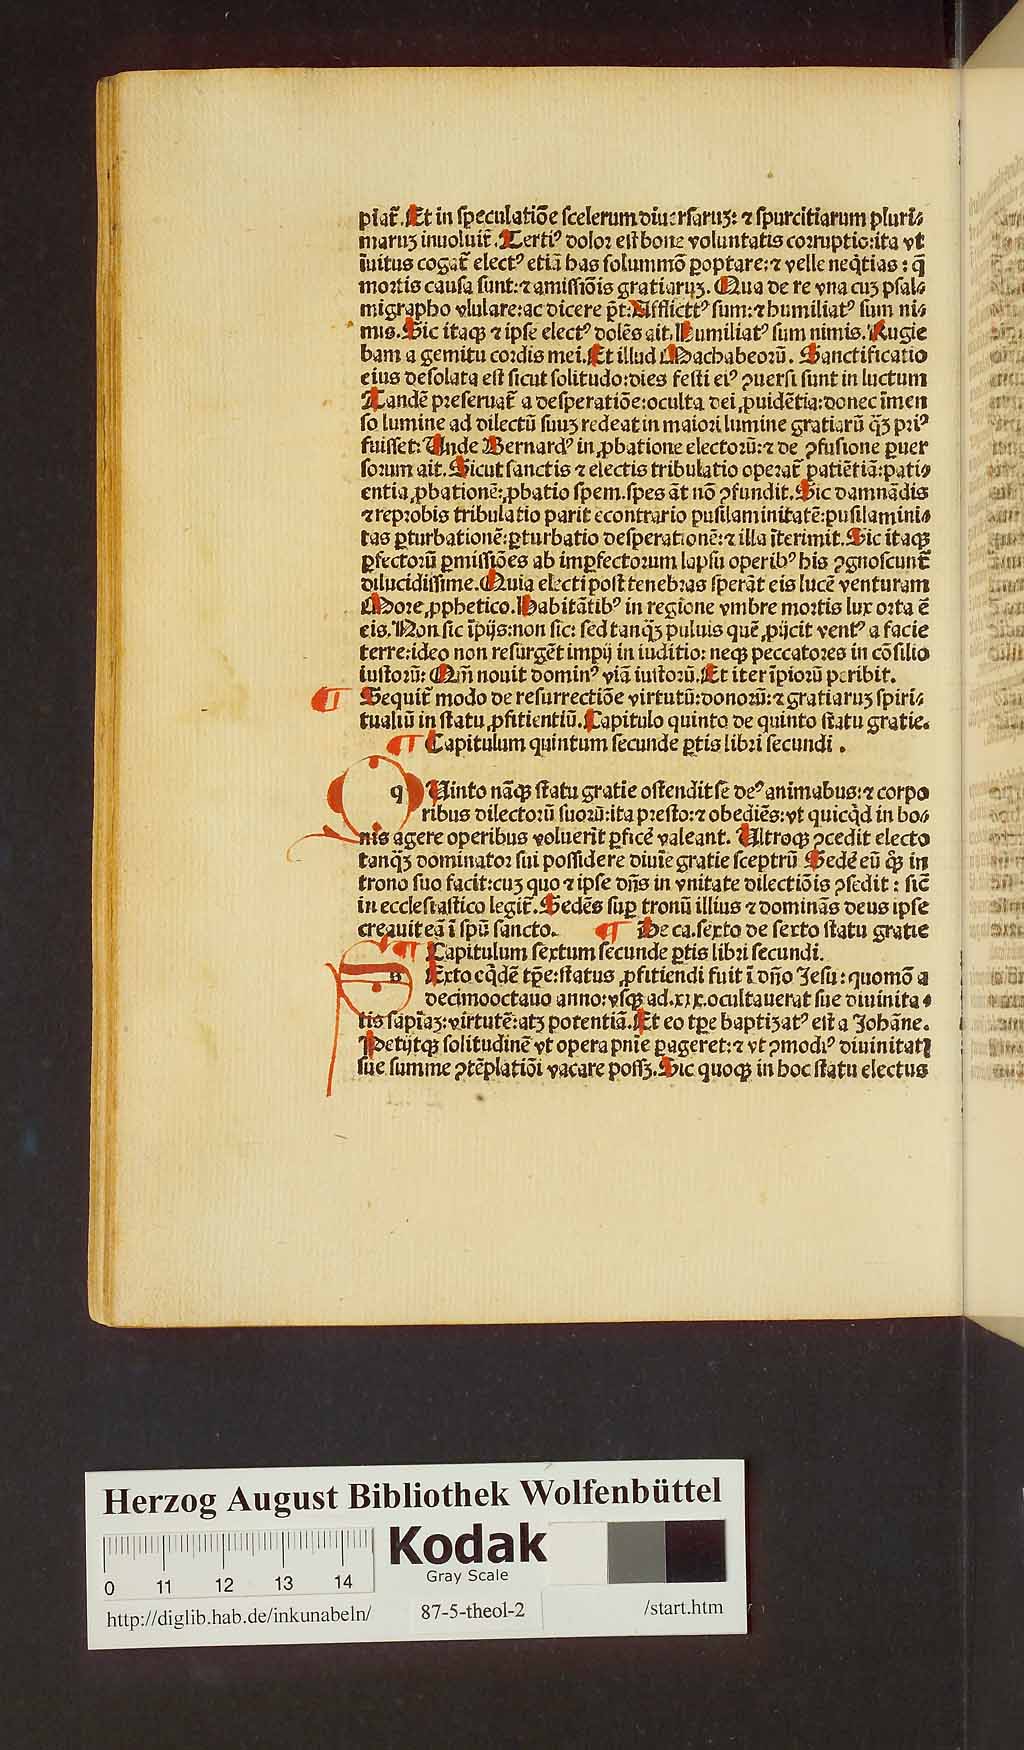 piat᷑. Et in speculatiõe scelerum diuersaruꝫ: ⁊ spurcitiarum pluri⸗
maruꝫ inuoluit᷑. Tertiꝰ dolor est bone voluntatis corruptio: ita vt
ĩuitus cogat᷑ electꝰ etiã has solummõ ꝑoptare: ⁊ velle neq̃tias: q̃
mortis causa sunt: ⁊ amissiõis gratiaruꝫ. Qua de re vna cuꝫ psal⸗
migrapho vlulare: ac dicere p̃t: Afflicttꝰ sum: ⁊ humiliatꝰ sum ni⸗
mis. Sic itaqꝫ ⁊ ipse electꝰ dolẽs ait. Humiliatꝰ sum nimis. Rugie
bam a gemitu cordis mei. Et illud Machabeorũ. Sanctificatio
eius desolata est sicut solitudo: dies festi eiꝰ ꝯuersi sunt in luctum
Tandẽ preseruat᷑ a desperatiõe: oculta dei ꝓuidẽtia: donec ĩmen
so lumine ad dilectũ suuꝫ redeat in maiori lumine gratiarũ q̃ꝫ priꝰ
fuisset: Unde Bernardꝰ in ꝓbatione electorũ: ⁊ de ꝯfusione ꝑuer
sorum ait. Sicut sanctis ⁊ electis tribulatio operat᷑ patiẽtiã: pati⸗
entia ꝓbationẽ: ꝓbatio spem. spes ãt nõ ꝯfundit. Sic damnãdis
⁊ reprobis tribulatio parit econtrario pusilaminitatẽ: pusilamini⸗
tas ꝑturbationẽ: ꝑturbatio desperationẽ: ⁊ illa ĩterimit. Sic itaqꝫ
ꝑfectorũ ꝑmissiões ab imꝑfectorum lapsu operibꝰ his ꝯgnoscunt᷑
dilucidissime. Quia electi post tenebras sperãt eis lucẽ venturam
More ꝓphetico. Habitãtibꝰ in regione vmbre mortis lux orta ẽ
eis. Non sic ĩpijs: non sic: sed tanq̃ꝫ puluis quẽ ꝓijcit ventꝰ a facie
terre: ideo non resurgẽt impij in iuditio: neqꝫ peccatores in cõsilio
iustorũ: Qm̃ nouit dominꝰ viã iustorũ. Et iter ĩpiorũ peribit.
¶ Sequit᷑ modo de resurrectiõe virtutũ: donorũ: ⁊ gratiaruꝫ spiri⸗
tualiũ in statu ꝓfitientiũ. Capitulo quinto de quinto statu gratie.
¶ Capitulum quintum secunde ꝑtis libri secundi.
qUinto nãqꝫ statu gratie ostendit se deꝰ animabus: ⁊ corpo
ribus dilectorũ suorũ: ita presto: ⁊ obediẽs: vt quicq̃d in bo⸗
nis agere operibus voluerĩt ꝑficẽ valeant. Ultroqꝫ ꝯcedit electo
tanq̃ꝫ dominator sui possidere diuĩe gratie sceptrũ Sedẽ eũ q̊ꝫ in
trono suo facit: cuꝫ quo ⁊ ipse dñs in vnitate dilectiõis ꝯsedit: sic̃
in ecclesiastico legit᷑. Sedẽs suꝑ tronũ illius ⁊ dominãs deus ipse
creauit eã ĩ spũ sancto. ¶ De ca. sexto de sexto statu gratie
¶ Capitulum sextum secunde ꝑtis libri secundi.
sExto cq̃dẽ tp̃e: status ꝓfitiendi fuit ĩ dño Jesu: quomõ a
decimooctauo anno: vsqꝫ ad. xix. ocultauerat sue diuinita⸗
tis sapiãꝫ: virtutẽ: atꝫ potentiã. Et eo tp̃e baptizatꝰ est a Johãne.
Petijtqꝫ solitudinẽ vt opera pnie ꝑageret: ⁊ vt ꝯmodiꝰ diuinitatꝭ
sue summe ꝯtẽplatiõi vacare possꝫ. Sic quoqꝫ in hoc statu electus
Herzog August Bibliothek Wolfenbüttel
Kodak
Gray Scale
0 11 12 13 14
http://diglib.hab.de/inkunabeln/ 87-5-theol-2 /start.htm